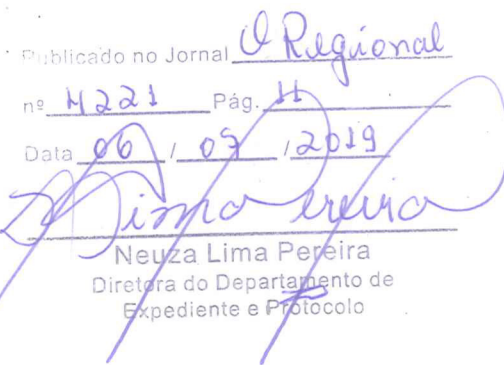 Publicado no Jornal O Regional
nº 4221 Pág. 11
Data 06 / 07 / 2019
Lima Pereira
Neuza Lima Pereira
Diretora do Departamento de
Expediente e Protocolo